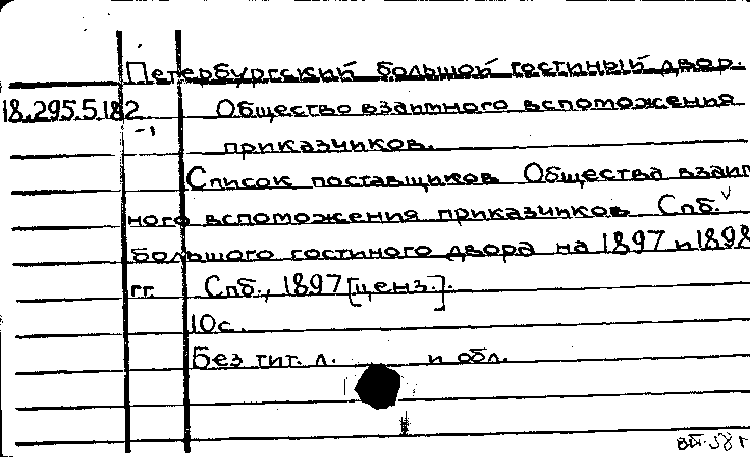 Петербургский большой гостиный двор.
18.295.5.182 Общество взаимного вспоможения
-1
приказчиков.
Список поставщиков Общества взаим
ного вспоможения приказчиков Спб.
большого гостиного двора на 1897 и 1898
гг. Спб., 1897 [ценз.].
10с.
Без тит. л. и обл.